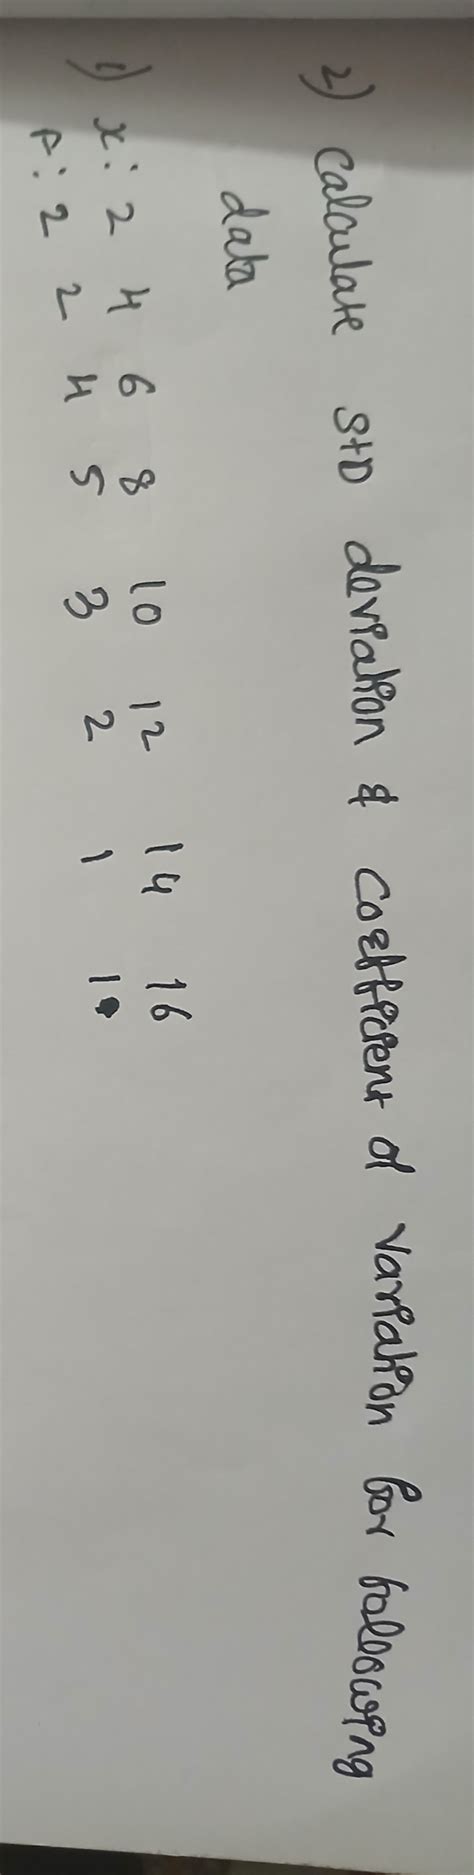 2) Calculate StD deviation & Coefficient of variation for following
data
1) x: 2 4 6 8 10 12 14 16
F: 2 2 4 5 3 2 1 1